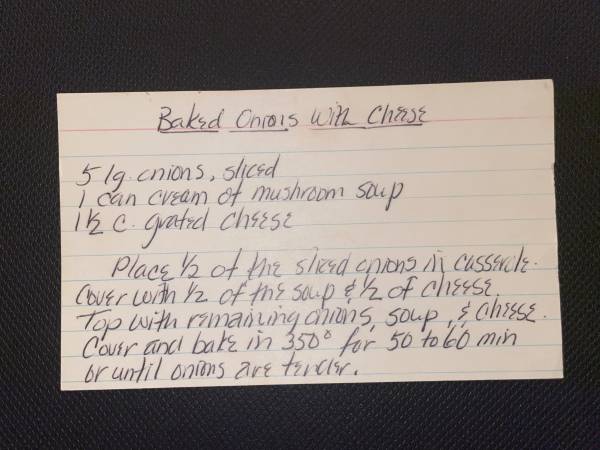 Baked Onions With Cheese
5 lg. onions, sliced
1 can cream of mushroom soup
1 1/2 c. grated cheese
Place 1/2 of the sliced onions in casserole.
Cover with 1/2 of the soup & 1/2 of cheese.
Top with remaining onions, soup, & cheese.
Cover and bake in 350° for 50 to 60 min
or until onions are tender.